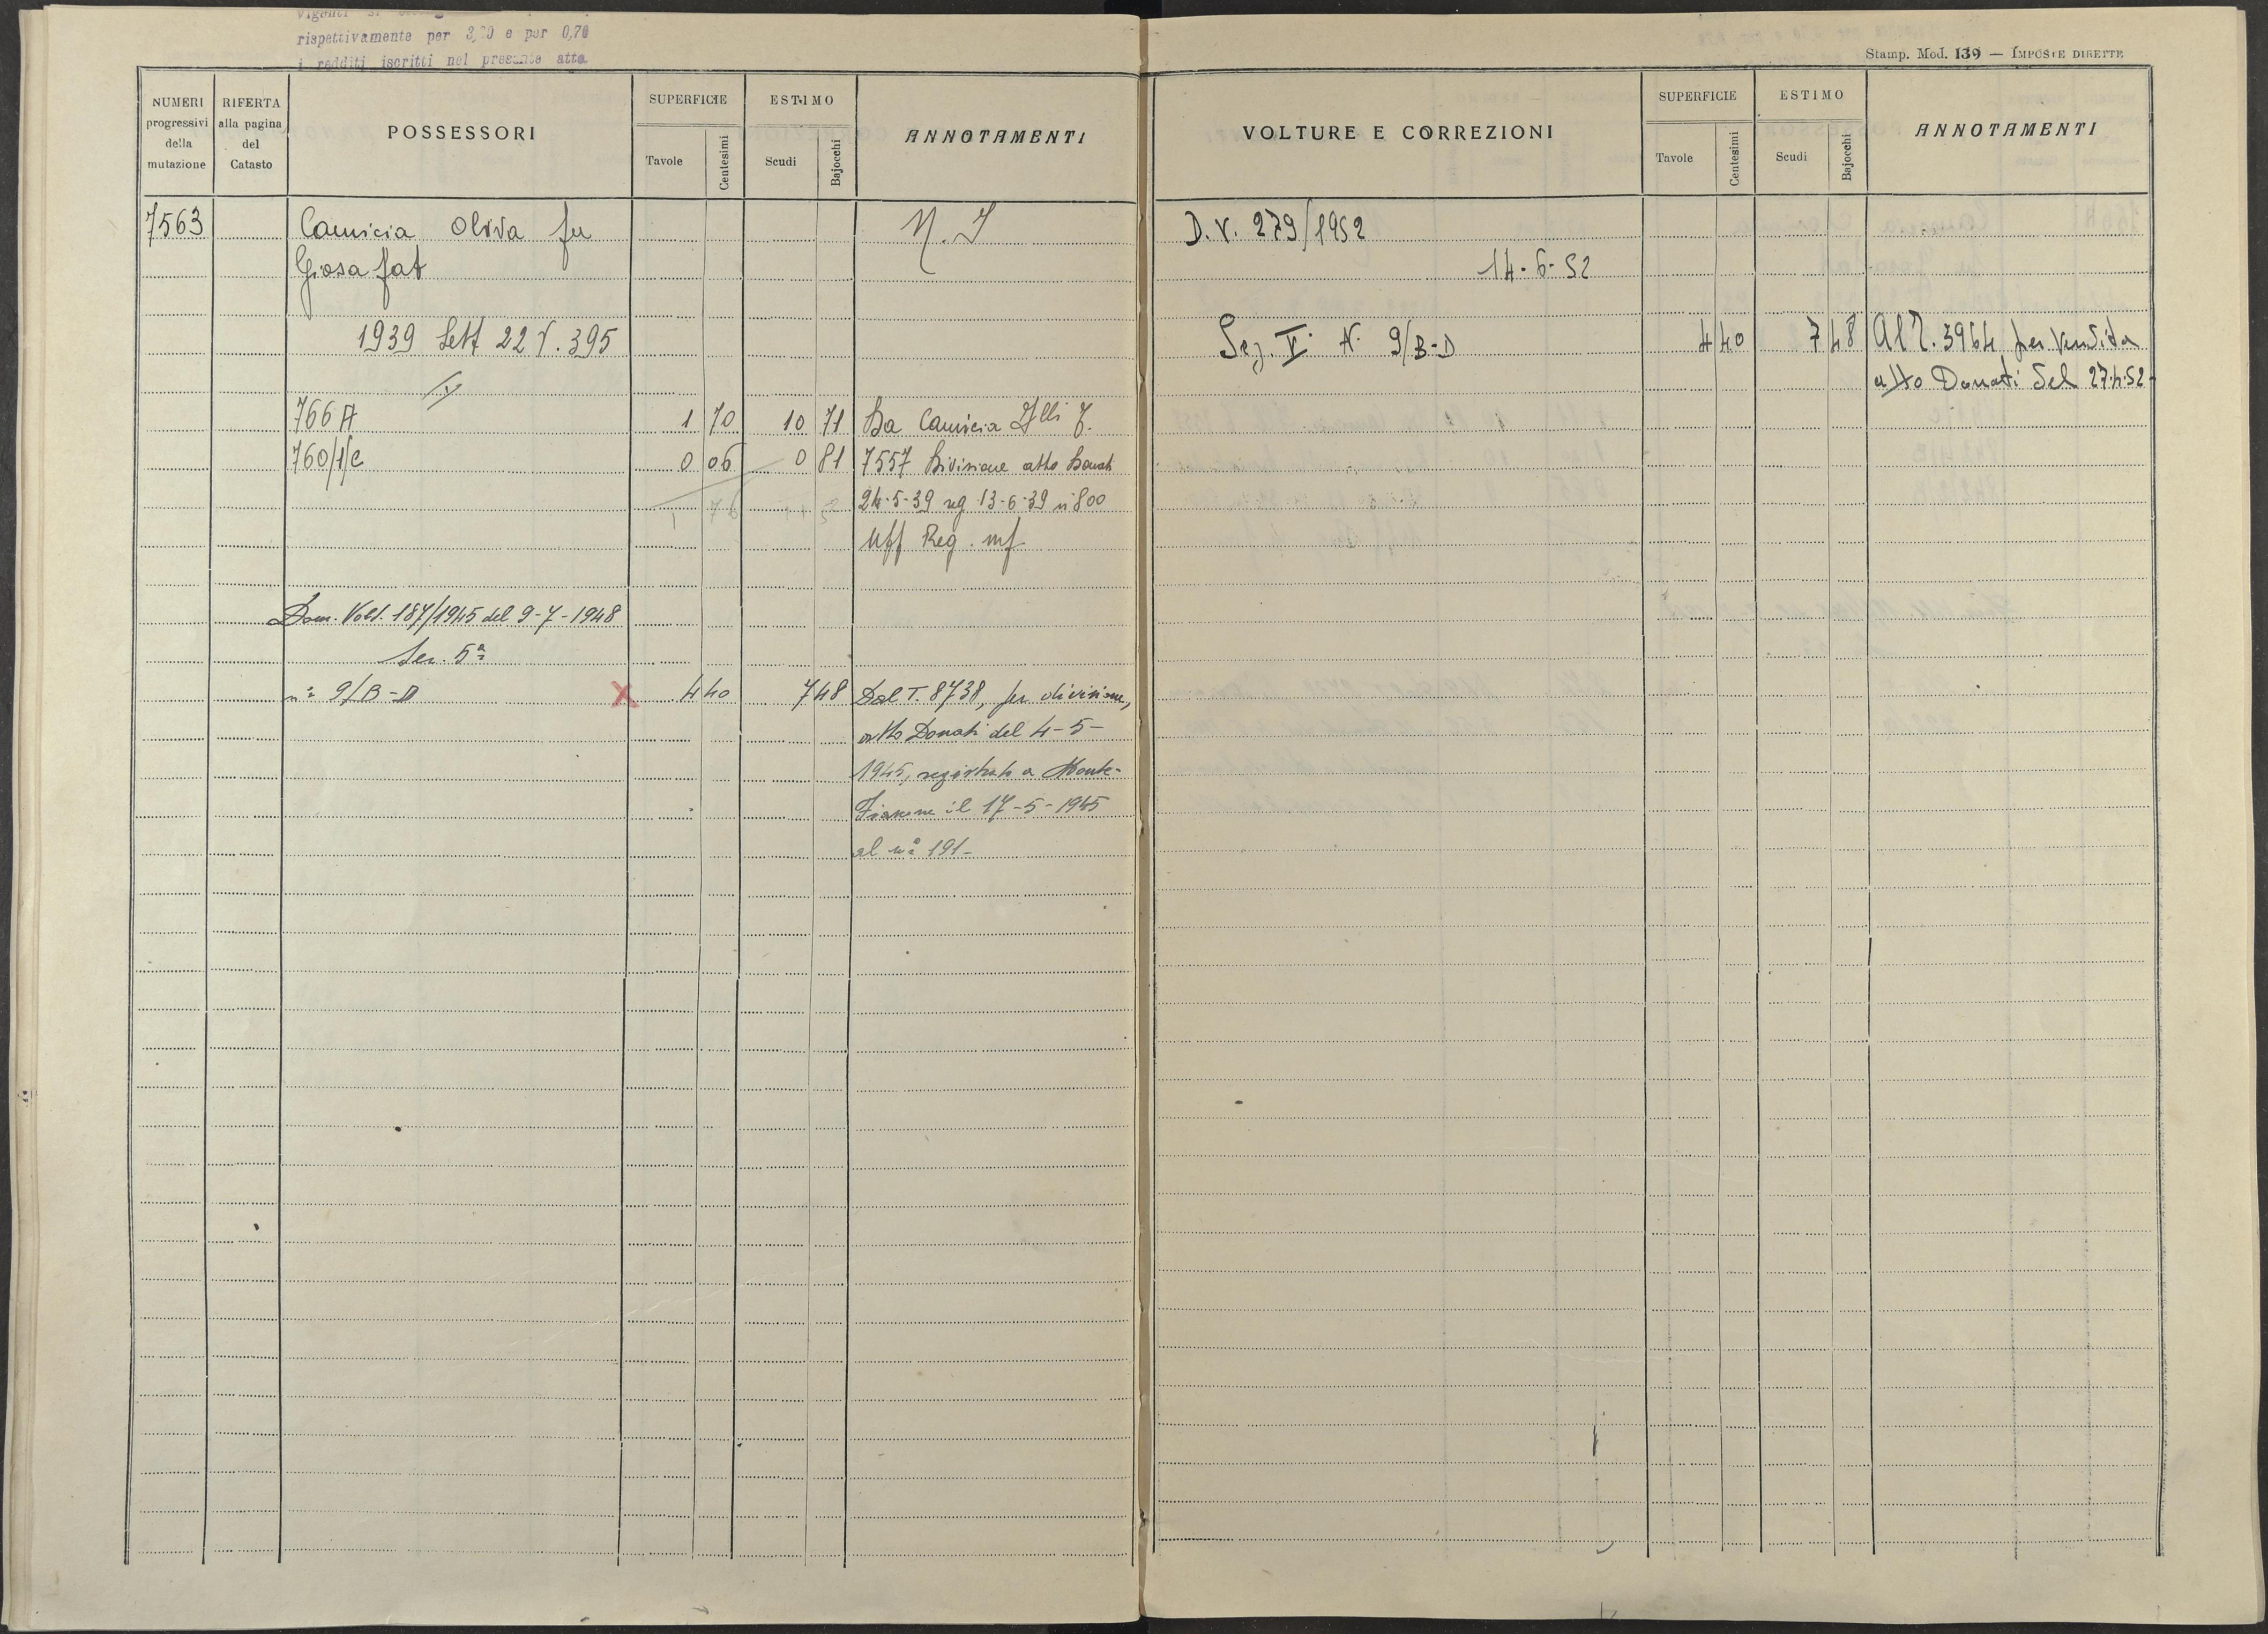 rispettivamente per 3,20 e per 0,70
i redditi iscritti nel presente atto
NUMERI progressivi della mutazione
RIFERTA alla pagina del Catasto
POSSESSORI
SUPERFICIE
Tavole
Centesimi
ESTIMO
Scudi
Bajocchi
ANNOTAMENTI
7563 Camicia Oliva fu
Giosafat
1939 Sett 22 V. 395
V
766 A 1 70 10 71 Da Camicia Flli T.
760/1/C 0 06 0 81 7557 Divisione atto Donati
1 76 24-5-39 reg 13-6-39 n 800
Uff Reg. mf
Dom. Volt. 187/1945 del 9-7-1948
Sez. 5ª
n° 9/B-D X 4 40 7 48 Dal T. 8738, per divisione,
atto Donati del 4-5-
1945, registrato a Monte-
Fiascone il 17-5-1945
al n° 191-
Stamp. Mod. 139 — IMPOSTE DIRETTE
VOLTURE E CORREZIONI
SUPERFICIE
Tavole
Centesimi
ESTIMO
Scudi
Bajocchi
ANNOTAMENTI
D.V. 279/1952
14-6-52
Sez. V N. 9/B-D 4 40 7 48 Al T. 3964 per Vendita
atto Donati del 27-4-52